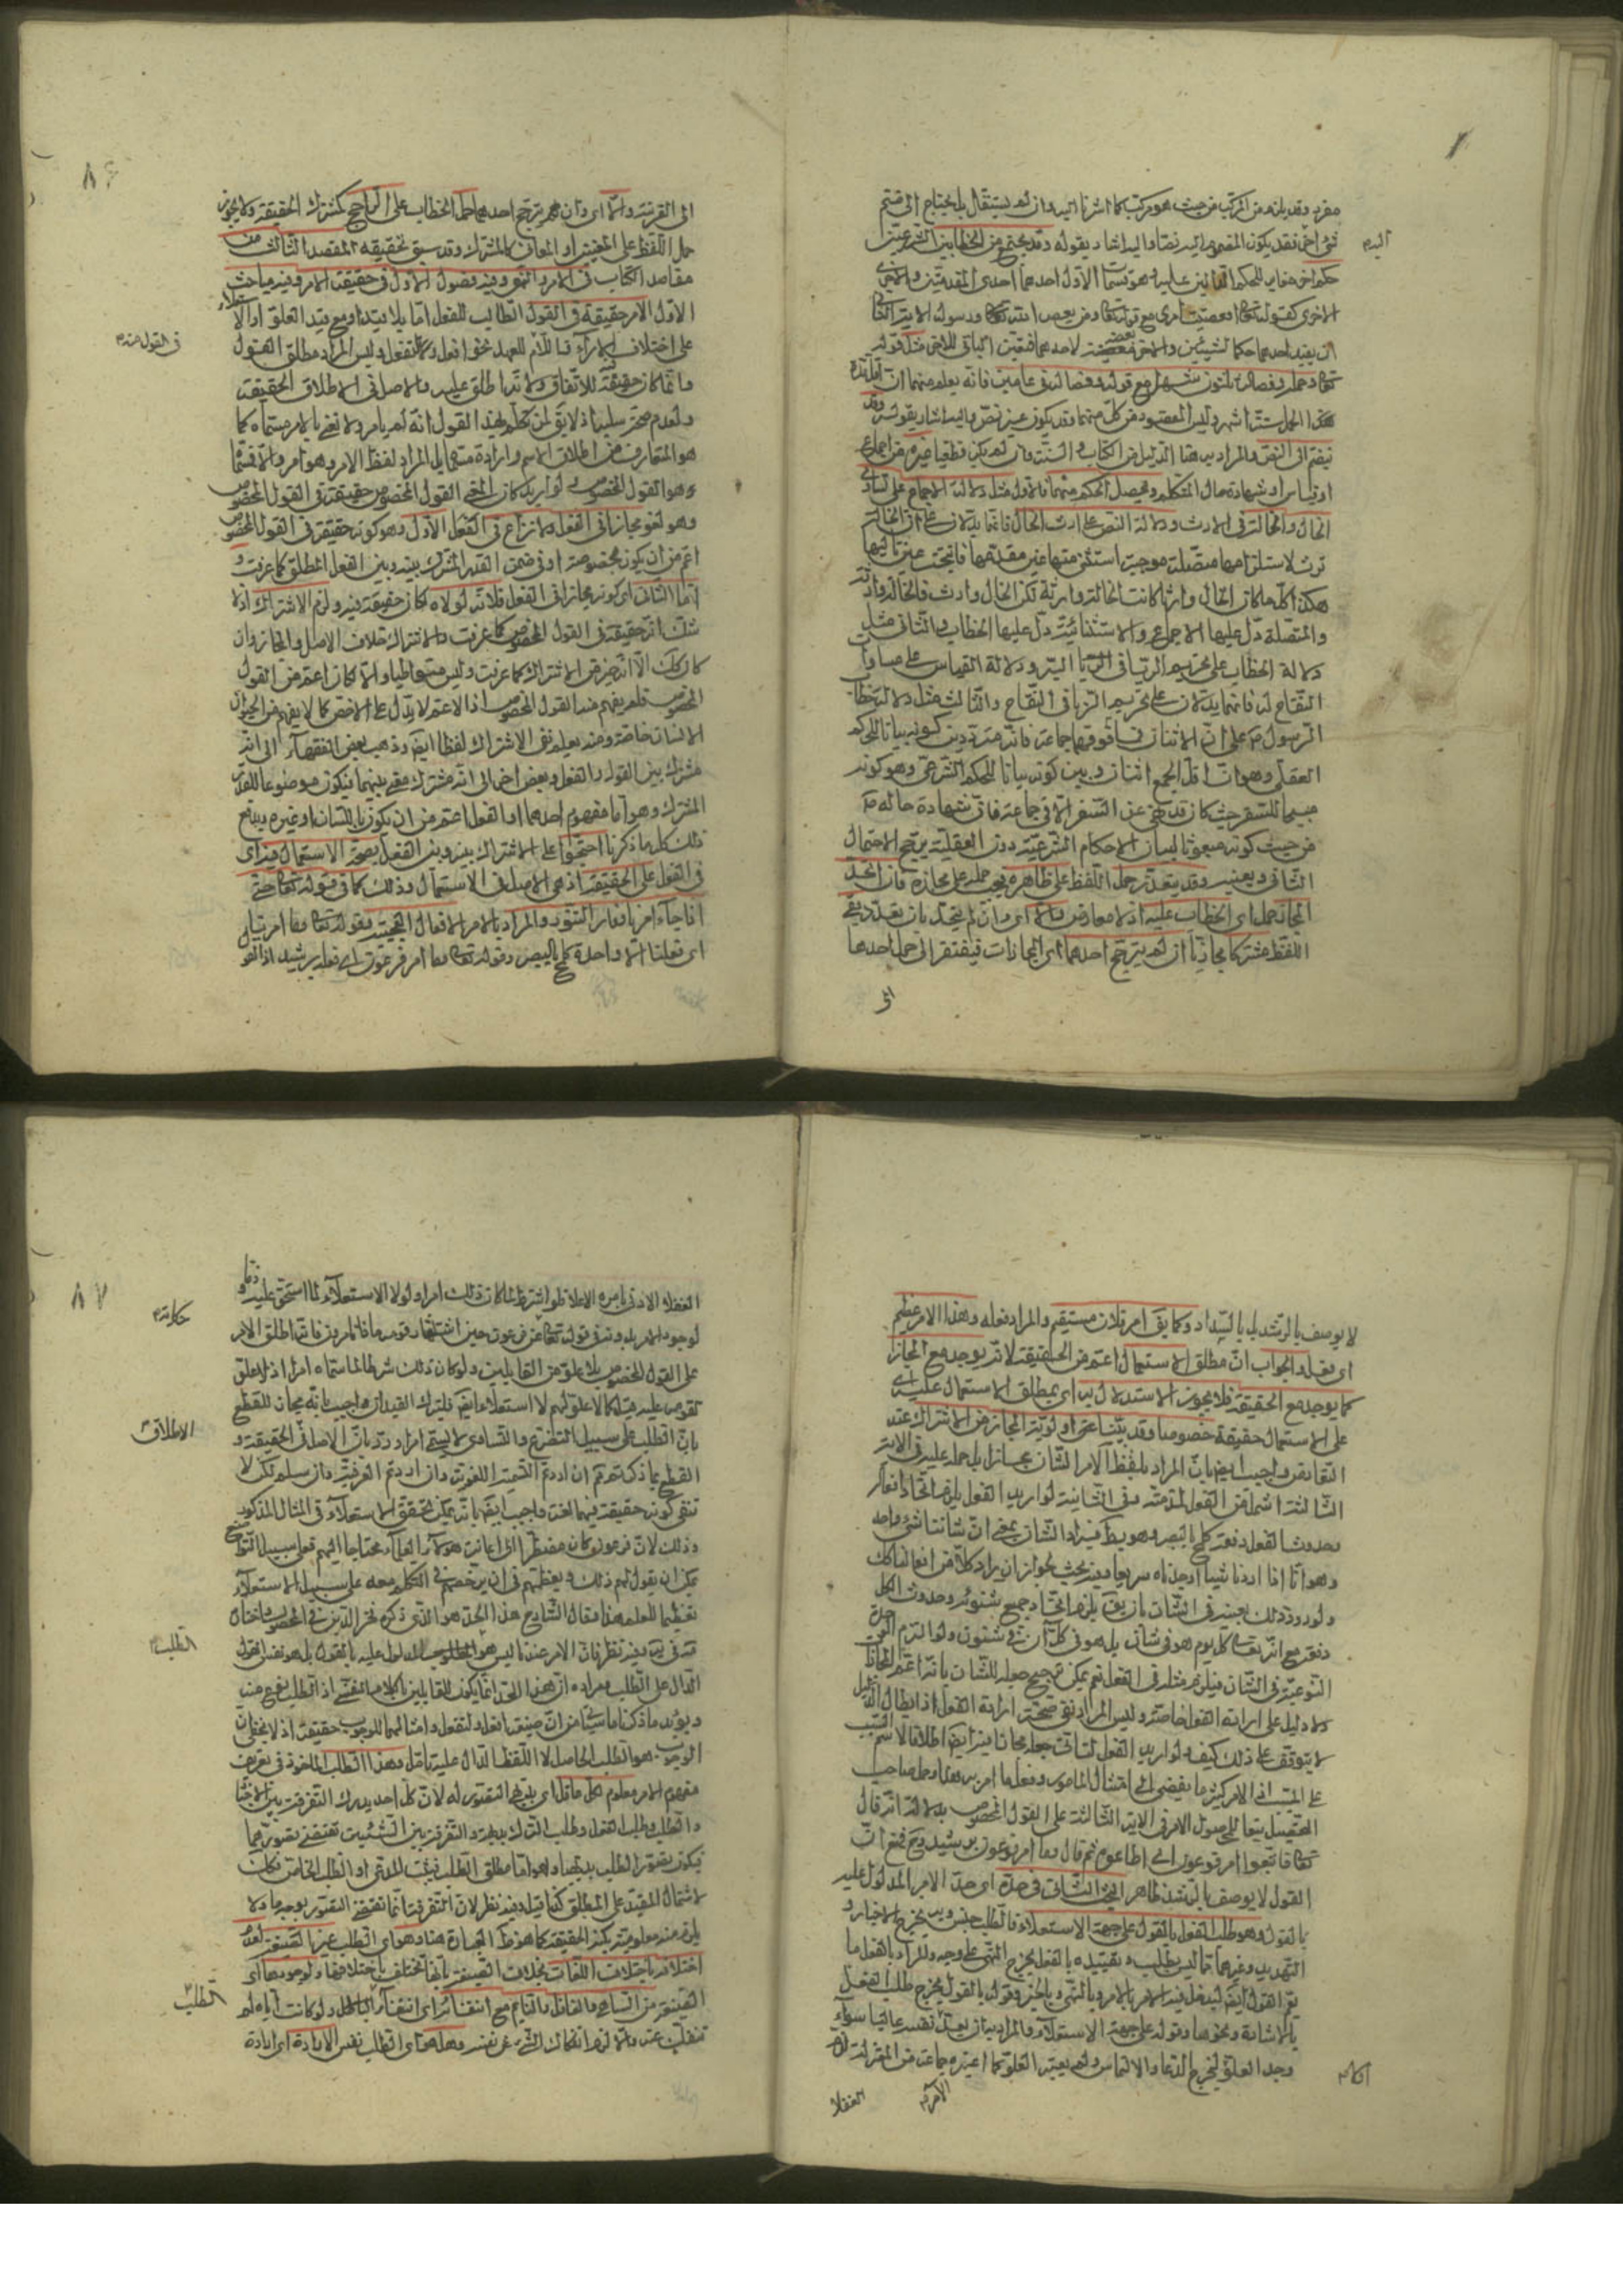 مفرد وقد يلزم من المركب من حيث هو مركب كما اشرنا اليه وان لم يستقل بل يحتاج الى ضم
شئ اخر فقد يكون المضموم اليه نصا واليه اشار بقوله وقد يجتمع من الخطابين الشرعيين
اليه م
حكم اخر مغاير للحكم
الاخرى كقوله تعالى افعصيت امرى مع قوله تعالى ومن يعص الله تعالى ورسوله الاية الثانى
ان يفيد احدهما حكما لشيئين والاخر بعضه لاحدهما فتعين الباقى للاخر مثل قوله
تعالى وحمله وفصاله ثلثون شهرا مع قوله وفصاله فى عامين فانه يعلم منهما ان اقل مدة
هذا الحمل ستة اشهر وليس المقصود من كل منهما وقد يكون غير نص واليه اشار بقوله وقد
يضم الى النص والمراد به هنا الدليل من الكتاب والسنة وان لم يكن قطعيا غيره من اجماع
او قياس او شهادة حال المتكلم ويحصل الحكم منهما فالاول مثل دلالة الاجماع على تساوى
الخال والخالة فى الارث ودلالة النص على ارث الخال فانهما يدلان على ان الخالة
ترث لاستلزامهما متصلة موجبة استثنى منها عين مقدمها فانتجت عين تاليها
هكذا كلما كان الخال وارثا كانت الخالة وارثة لكن الخال وارث فالخالة وارثة
والمتصلة دل عليها الاجماع والاستثنائية دل عليها الخطاب والثانى مثل
دلالة الخطاب على تحريم الربا فى البر ودلالة القياس على مساواة
التفاح له فانهما يدلان على تحريم الربا فى التفاح والثالث مثل دلالة خطاب
الرسول م على ان الاثنان فما فوقهما جماعة فانه متردد بين كونه بيانا للحكم
العقلى وهو ان اقل الجمع اثنان وبين كونه بيانا للحكم الشرعى وهو كونه
مبيحا للسفر حيث كان قد نهى عن السفر الا فى جماعة فان شهادة حاله م
من حيث كونه مبعوثا لبيان الاحكام الشرعية دون العقلية يرجح الاحتمال
الثانى ويعينه وقد يتعذر حمل اللفظ على ظاهره فيجب حمله على مجازه فان اتحد
المجاز حمل اى الخطاب عليه اذ لا معارض والا اى وان لم يتحد بان تعدد بقى
اللفظ مشتركا مجازيا ان لم يترجح احدهما اى المجازات فيفتقر الى حمل احدهما
الى
٨٦
الى القرينة والا اى وان لم يترجح احدهما حمل الخطاب على الراجح كمشترك الحقيقة ولا يجوز
حمل اللفظ على المعنيين او المعانى كالمشترك وقد سبق تحقيقه المقصد الثالث من
مقاصد الكتاب فى الامر والنهى وفيه فصول الاول فى حقيقة الامر وفيه مباحث
الاول الامر حقيقة فى القول الطالب للفعل اما بلا قيد او مع قيد العلو او الاستعلاء
على اختلاف الاراء فاللام للعهد نحو افعل ولتفعل وليس المراد مطلق القول
فى القول م
وانما كان حقيقة فيه للاتفاق ولانه اطلق عليه والاصل فى الاطلاق الحقيقة
ولعدم صحة سلبه اذ لا يق لمن تكلم بهذا القول انه لم يامر ولا نعنى بالامر مسماه كما
هو المتعارف من اطلاق الاسم وارادة مسماه بل المراد لفظ الامر وهو امر
وهو القول المخصوص لو اريد كان المعنى القول المخصوص حقيقة فى القول المخصوص
وهو لغو مجاز فى الفعل ولا نزاع فى الاول وهو كونه حقيقة فى القول المخصوص
اعم من ان يكون بخصوصه او فى ضمن القدر المشترك بينه وبين الفعل المطلق كما عرفت و
اما الثانى اى كونه مجازا فى الفعل فلانه لولاه لكان حقيقة فيه ولزم الاشتراك اذ لا
شك انه حقيقة فى القول المخصوص كما عرفت والاشتراك خلاف الاصل والمجاز وان
كان كك الا انه خير من الاشتراك كما عرفت وليس متواطيا والا لكان اعم من القول
المخصوص فلم يفهم منه القول المخصوص اذ الاعم لا يدل على الاخص كما لا يفهم من الحيوان
الانسان خاصة ومنه يعلم نفى الاشتراك لفظا ايض وذهب بعض الفقهاء الى انه
مشترك بين القول والفعل وبعض اخر الى انه مشترك معنى بينهما فيكون موضوعا للقدر
المشترك وهو اما مفهوم احدهما او الفعل اعم من ان يكون باللسان او غيره
ذلك كل ما ذكرنا احتجوا على الاشتراك بينه وبين الفعل بصحة الاستعمال فيه اى
فى الفعل على الحقيقة اذ هى الاصل فى الاستعمال وذلك كما فى قوله تعالى حتى
اذا جاء امرنا وفار التنور والمراد بالامر الافعال العجيبة وقوله تعالى وما امرنا
اى فعلنا الا واحدة كلمح بالبصر وقوله تعالى وما امر فرعون اى فعله برشيد اذ القول
لا يوصف بالرشد بل بالسداد وكما يق امر فلان مستقيم والمراد فعله وهذا الامر عظيم
اى فعل والجواب ان مطلق الاستعمال اعم من الحقيقة لانه يوجد مع المجاز
كما يوجد مع الحقيقة فلا يجوز الاستدلال به اى بمطلق الاستعمال عليه اى
على الاستعمال حقيقة خصوصا وقد بينا اولوية المجاز من الاشتراك عند
التعارض واجيب ايض بان المراد بلفظ الامر الشان مجازا بل حمله عليه فى الاية
الثالثة اشمل من الفعل لذمته وفى الثانية لو اريد الفعل يلزم اتحاد افعاله
وحدوث الفعل دفعة كلمح بالبصر وهو بط فيراد الشان بمعنى ان شاننا شئ واحد
وهو انا اذا اردنا شيئا اوجدناه سريعا وفيه بحث لجواز ان يراد كلا من افعالنا كك
ولورود ذلك بعينه فى الشان بان يق يلزم اتحاد جميع شئونه وحدوث الكل
دفعة مع انه تعالى كل يوم هو فى شان بل هو فى كل آن فى شئون ولو التزم الوحدة
النوعية فى الشان فيلتزم مثله فى الفعل نعم يمكن ترجيح حمله للشان بانه اعم المجازات
ولا دليل على ارادة الفعل خاصة وليس المراد نفى صحة ارادة الفعل اذ ابطال الدليل
لا يتوقف على ذلك كيف ولو اريد الفعل لتاتى جعله مجازا فيه ايض اطلاقا لاسم السبب
على المسبب اذ الامر كثيرا ما يفضى الى امتثال المامور وفعل ما امر به وحمل صاحب
التحصيل تبعا للمحصول الامر فى الاية الثالثة على القول المخصوص بدلالة انه قال
تعالى فاتبعوا امر فرعون اى اطاعوه ثم قال وما امر فرعون برشيد فمنع ان
القول لا يوصف بالرشد ظاهر البحث الثانى فى حده اى حد الامر المدلول عليه
بالقول وهو طلب الفعل بالقول على جهة الاستعلاء فالطلب جنس وبه يخرج الاخبار و
التهديد وغيرهما مما ليس بطلب وتقييده بالفعل يخرج النهى على وجه والمراد بالفعل ما
يعم القول ايض ليدخل فيه الامر بالامر وبالنهى وبالخبر وقوله بالقول يخرج طلب الفعل
بالاشارة ونحوها وقوله على جهة الاستعلاء والمراد به ان يعد نفسه عاليا سواء
وجد العلو ليخرج الدعاء والالتماس ولم يعتبر العلو كما اعتبره جماعة من المعتزلة
العقلاء
٨٧
العقلاء الادنى بامره الاعلى فلو اشترط لما كان ذلك امرا ولولا الاستعلاء لما استحق عليه ذما و
لوجود الامر بدونه فى قوله تعالى عن فرعون حين استشار قومه ماذا تامرون فانه اطلق الامر
حكاية م
على القول المخصوص بلا علو من القايلين ولو كان ذلك شرطا لما سماه امرا اذ لا علو
لقومه عليه قيل كما لا علو لهم لا استعلاء ايض فليترك القيدان واجيب بانه مجاز للقطع
بان الطلب على سبيل التضرع والتساوى لا يسمى امرا ورد بان الاصل فى الحقيقة و
الاطلاق م
القطع بما ذكرتم ثم ان اردتم التسمية اللغوية وان اردتم العرفية وان سلم لكن لا
تنفى كونه حقيقة فيهما لغة واجيب ايض بانه يمكن تحقق الاستعلاء فى المثال المذكور
وذلك لان فرعون كان مضطرا الى اعانة هؤلاء العلماء محتاجا اليهم فعلى سبيل التواضع
يمكن ان يقول لهم ذلك ويعظمهم فى ان يرخصهم فى التكلم معه على سبيل الاستعلاء
تعظيما للعلم هذا وقال الشارح هذا الحد هو الذى ذكره فخر الدين فى المحصول واختاره
فيه نظر فان الامر عندنا ليس هو المطلوب المدلول عليه بالقول بل هو نفس القول
الطلب م
الدال على الطلب ومراده ان هذا الحد انما يكون للقايلين بالكلام النفسى اذ الطلب نوع منه
ويؤيد ما ذكرنا ما سياتى من ان صيغة افعل ولتفعل وامثالهما للوجوب حقيقة اذ لا يخفى ان
الوجوب هو الطلب الحاصل لا اللفظ الدال عليه تامل وهذا الطلب الماخوذ فى تعريف
مفهوم الامر معلوم لكل عاقل اى بديهى التصور له لان كل احد يدرك التفرقة بين الاخبار
والطلب وطلب الفعل وطلب الترك بديهة والتفرقة بين الشيئين تقتضى تصورهما
فيكون تصور الطلب بديهيا وهو اما مطلق الطلب فيثبت المدعى او الطلب الخاص فكان
لاشتمال المقيد على المطلق كذا قيل وفيه نظر لان التفرقة انما تقتضى التصور بوجه ما ولا
يلزم منه معلومية بكنه الحقيقة كما هو ظ العبارة هنا وهو اى الطلب غير الصيغة لعدم
اختلافه باختلاف اللغات بخلاف الصيغة فانها تختلف باختلافها ولوجودها اى
الصيغة من الساهى والغافل والنايم مع انتفائه اى انتفاء الطلب ولو كانت اياه لم
الطلب م
تنفك عنه والا لزم انفكاك الشئ عن نفسه وهل هو اى الطلب نفس الارادة اى ارادة